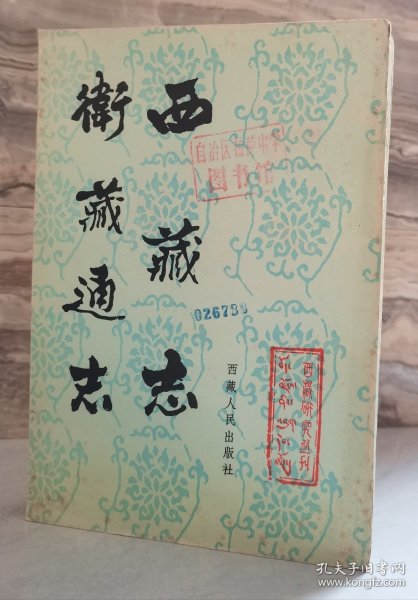 西藏志
衛藏通志
自治区
图书馆
026799
西藏人民出版社
西藏研究丛刊
孔夫子旧书网
www.kongfz.com